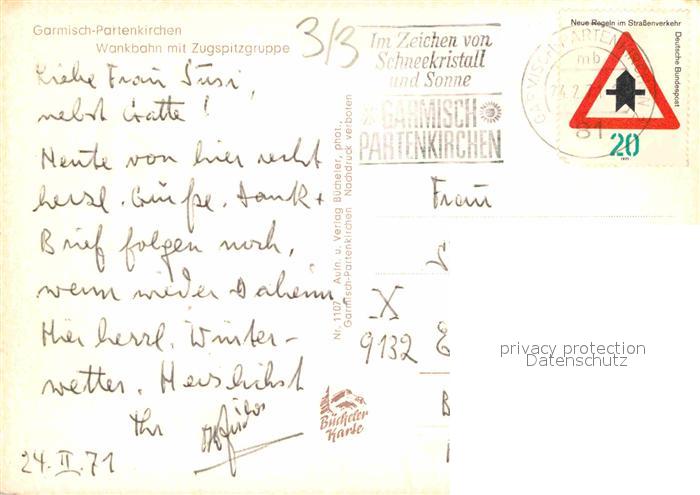 Garmisch-Partenkirchen
Wankbahn mit Zugspitzgruppe
3/3
Liebe Frau Susi,
nebst Gatte!
Heute von hier recht
herzl. Grüße. Dank +
Brief folgen noch,
wenn wieder daheim.
Hier herrl. Winter-
wetter. Herzlichst
Ihr
24.II.71
Nr. 1107 Aufn. u. Verlag Bücheler, phot.
Garmisch-Partenkirchen Nachdruck verboten
Bücheler
Karte
Im Zeichen von
Schneekristall
und Sonne
GARMISCH
PARTENKIRCHEN
GARMISCH-PARTENKIRCHEN
mb
81
Neue Regeln im Straßenverkehr
Deutsche Bundespost
20
1971
Frau
X
9132 E
privacy protection
Datenschutz